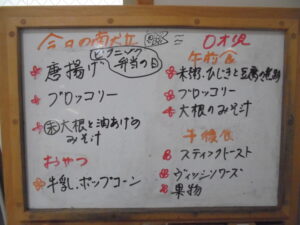 今日の献立
ピクニック
弁当の日
唐揚げ
ブロッコリー
大根と油あげの
みそ汁
おやつ
牛乳、ポップコーン
0才児
午前食
米粥、ひじきと豆腐の煮物
ブロッコリー
大根のみそ汁
午後食
スティックトースト
ヴィッシソワーズ
果物